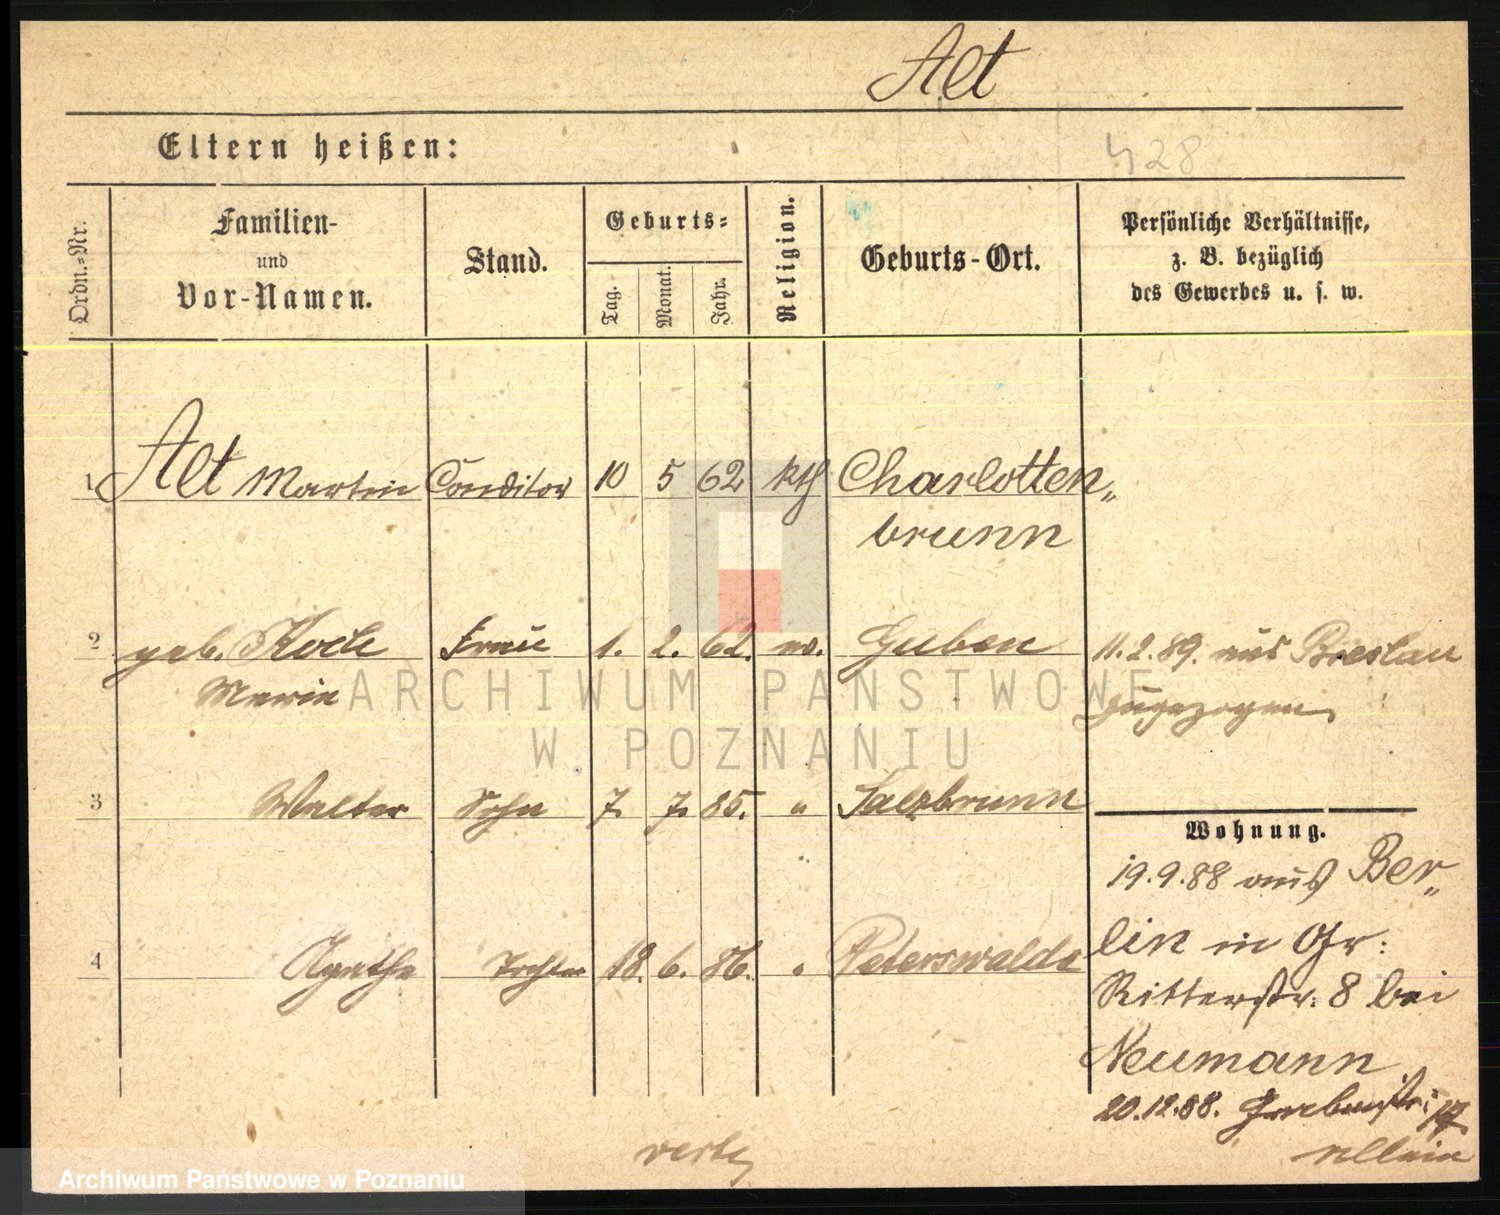 Alt
Eltern heißen:
428
Ordn.-Nr.
Familien-
und
Vor-Namen.
Stand.
Geburts-
Tag.
Monat.
Jahr.
Religion.
Geburts-Ort.
Persönliche Verhältnisse,
z. B. bezüglich
des Gewerbes u. s. w.
1 Alt Martin Conditor 10 5 62 kth Charlotten„
brunn
2 geb. Koch Frau 1. 2. 62. ev. Guben 11.2.89. aus Breslau
Marie zugezogen
ARCHIWUM PAŃSTWOWE
W POZNANIU
3 Walter Sohn 7. 7. 85. " Salzbrunn
Wohnung.
19.9.88 aus Ber„
4 Agathe Tochter 18. 6. 86. " Peterswalde lin in Gr:
Ritterstr: 8 bei
Neumann
20.12.88. Grabenstr:
allein
Archiwum Państwowe w Poznaniu